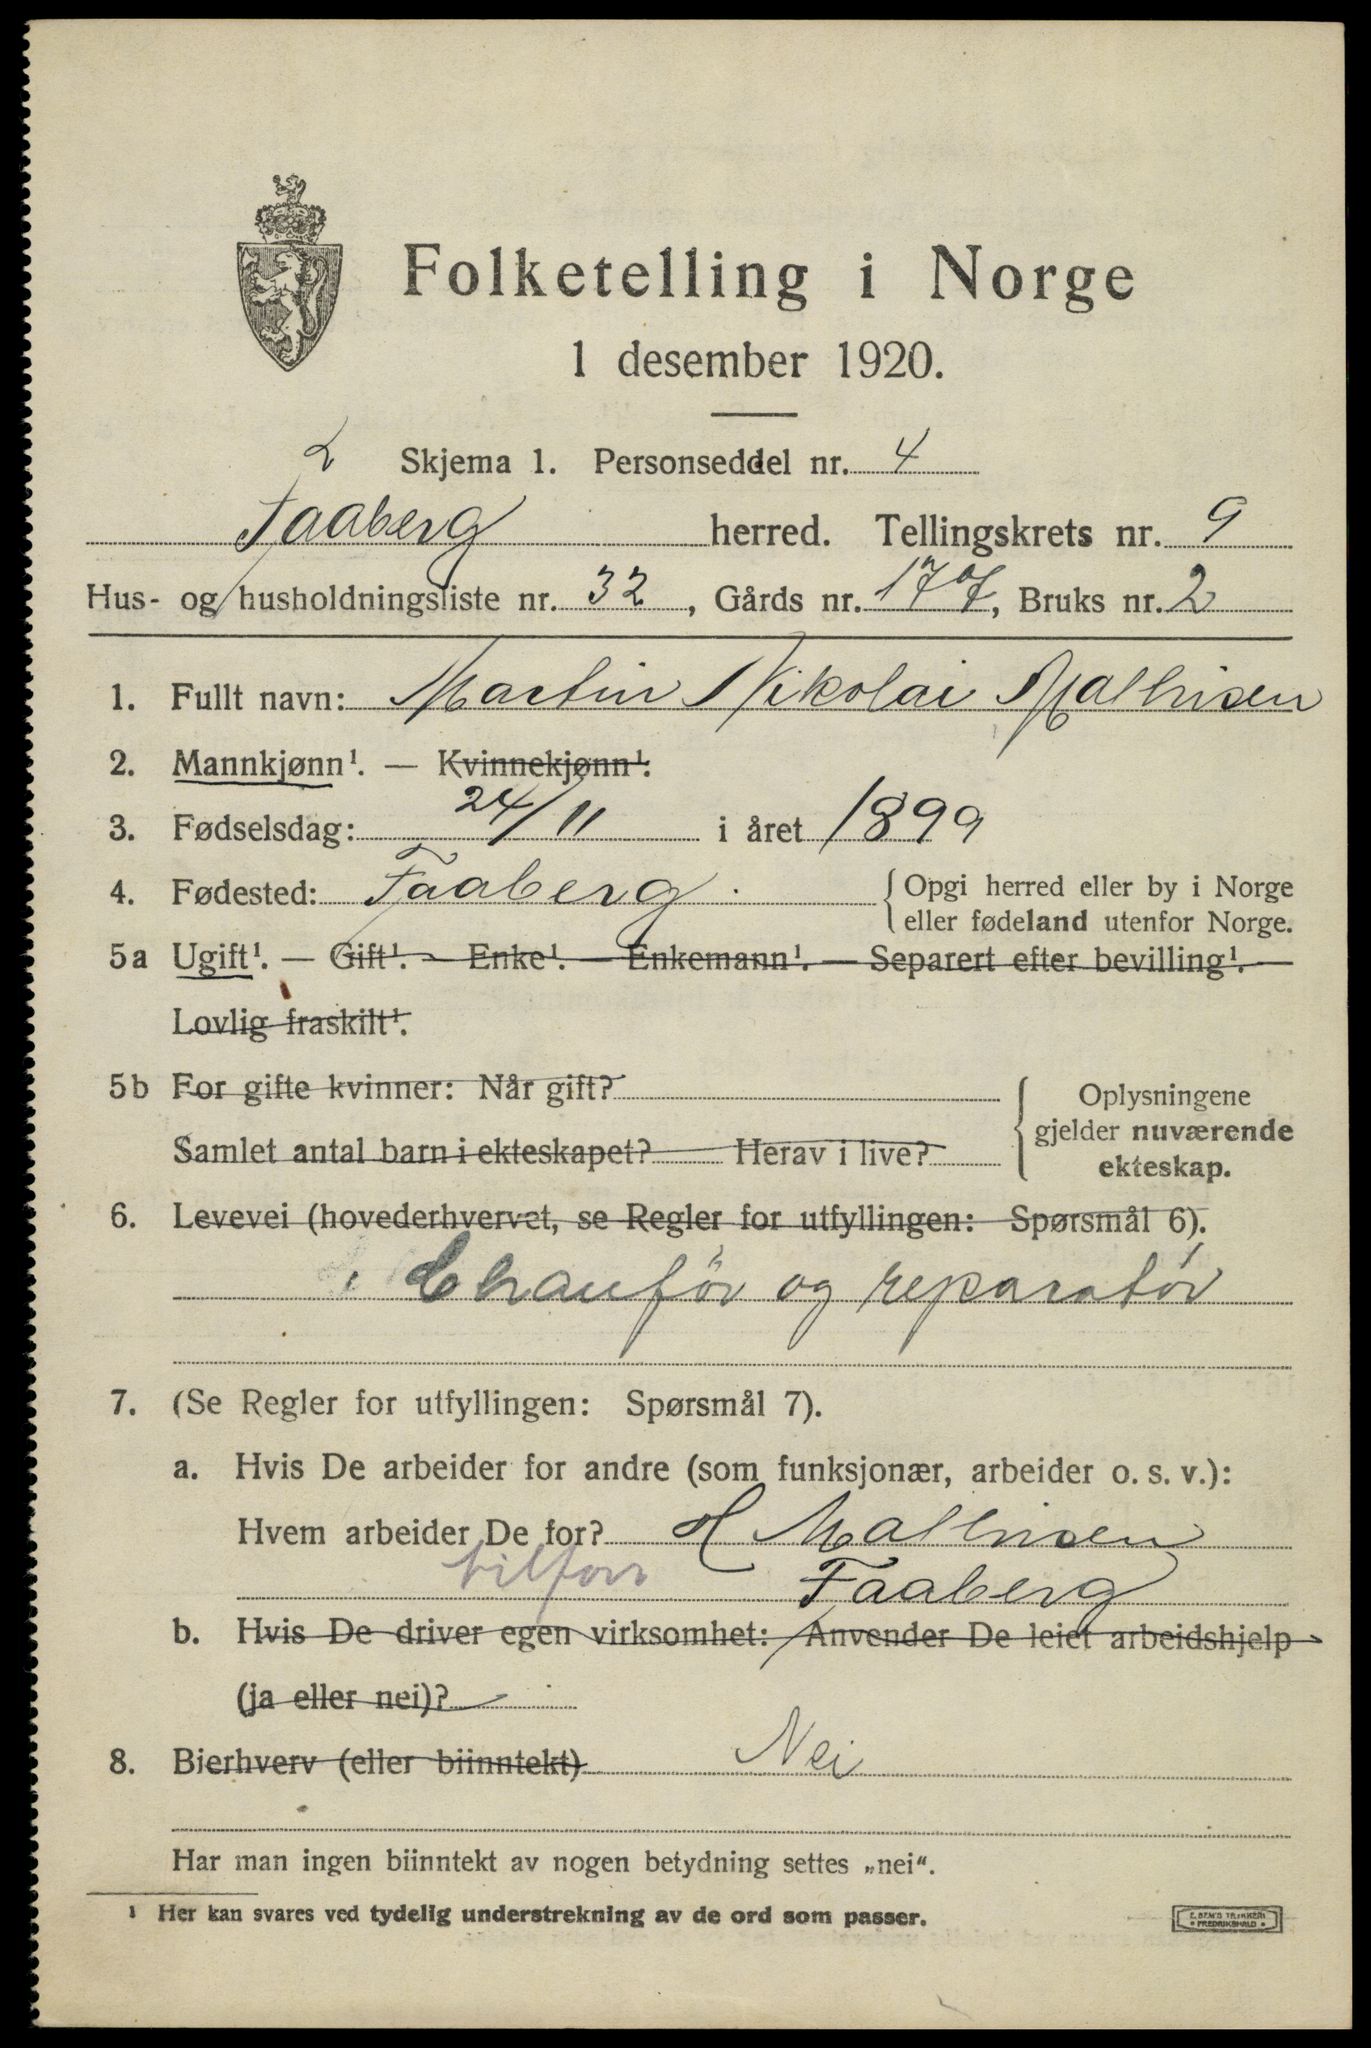 Folketelling i Norge
1 desember 1920.
2 Skjema 1. Personseddel nr. 4
Faaberg herred. Tellingskrets nr. 9
Hus- og husholdningsliste nr. 32, Gårds nr. 177, Bruks nr. 2
1. Fullt navn: Martin Nikolai Mathisen
2. Mannkjønn¹. — Kvinnekjønn¹.
3. Fødselsdag: 24/11 i året 1899
4. Fødested: Faaberg. { Opgi herred eller by i Norge
eller fødeland utenfor Norge.
5a Ugift¹. — Gift¹. — Enke¹. — Enkemann¹. — Separert efter bevilling¹. —
Lovlig fraskilt¹.
5b For gifte kvinner: Når gift? { Oplysningene
gjelder nuværende
Samlet antal barn i ekteskapet? Herav i live?
ekteskap.
6. Levevei (hovederhvervet, se Regler for utfyllingen: Spørsmål 6).
Chauffør og reparatør
7. (Se Regler for utfyllingen: Spørsmål 7).
a. Hvis De arbeider for andre (som funksjonær, arbeider o. s. v.):
Hvem arbeider De for? H Mathisen
Faaberg
b. Hvis De driver egen virksomhet: Anvender De leiet arbeidshjelp
(ja eller nei)?
8. Bierhverv (eller biinntekt) Nei
Har man ingen biinntekt av nogen betydning settes „nei“.
¹ Her kan svares ved tydelig understrekning av de ord som passer.
E. SEM'S TRYKKERI
• FREDRIKSHALD •